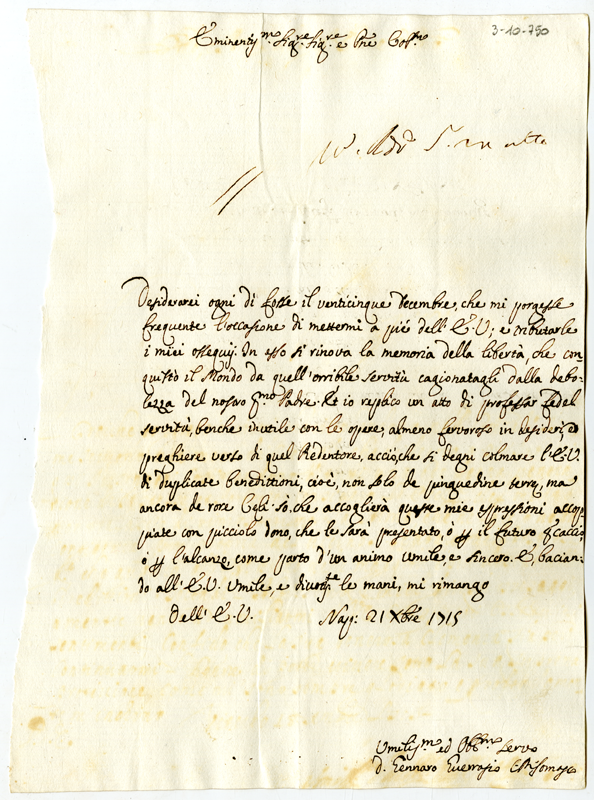 3-10-750
Eminentis.mo Sig.re Sig.re e Pne Col.mo
Desiderarei ogni dì fosse il venticinque decembre, che mi porgesse
frequente l'occasione di mettermi a pié dell'E.V., e tributarle
i miei ossequij. In esso si rinova la memoria della libertà, che con
quistò il Mondo da quell'orribile servitù cagionatagli dalla debo-
lezza del nostro P.mo Padre. Et io replico un atto di professar fedel
servitù, benche inutile con le opere, almeno fervoroso in desiderj, e
preghiere verso di quel Redentore, acciòche si degni colmare l'E.V.
di duplicate benedittioni, cioè, non solo de pinguedine terrę, ma
ancora de rore Cęli. Sò, che accoglierà queste mie espressioni accop
piate con picciolo dono, che le sarà presentato, ò il futuro
ò l'alcanzo, come parto d'un animo umile, e sincero. E, bacian-
do all'E.V. umile, e le mani, mi rimango
Dell'E.V. Nap: 21 Xbre 1715
Umilis.mo ed Obb.mo Servo
D. Gennaro Guerrasio